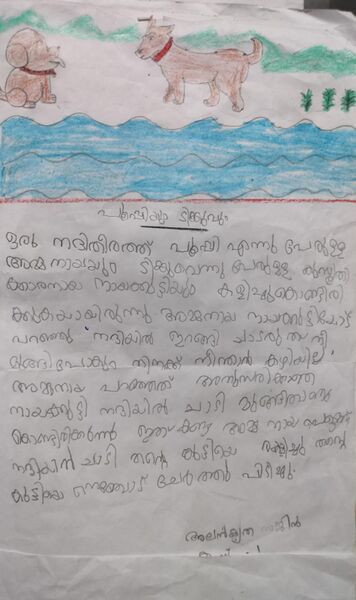 പപ്പിയും ടിക്കുവും
ഒരു നദിതീരത്ത് പപ്പി എന്നു പേരുള്ള
അമ്മനായയും ടിക്കുവെന്നു പേരുള്ള കുസൃതി
ക്കാരനായ നായക്കുട്ടിയും കളിച്ചുകൊണ്ടിരി
ക്കുകയായിരുന്നു അമ്മനായ നായക്കുട്ടിയോട്
പറഞ്ഞു നദിയിൽ ഇറങ്ങി ചാടരുത് നീ
മുങ്ങിപോകും നിനക്ക് നീന്താൻ കഴിയില്ല
അമ്മനായ പറഞ്ഞത് അനുസരിക്കാതെ
നായക്കുട്ടി നദിയിൽ ചാടി മുങ്ങിത്താഴ്ന്നു
കൊണ്ടിരിക്കുന്നു ഇത് കണ്ട അമ്മ നായ പെട്ടെന്ന്
നദിയിൽ ചാടി തന്റെ കുട്ടിയെ രക്ഷിച്ചു തന്റെ
കുട്ടിയെ നെഞ്ചോട് ചേർത്തു പിടിച്ചു.
അലൻകൃത സജിൽ